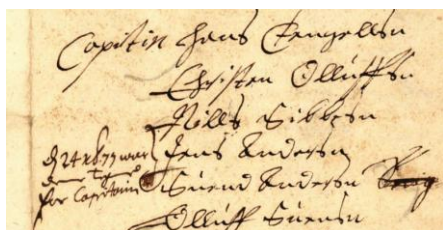 Capitin Hans Engellsn
Christen Olluffsn
Nills Sibbesn
Jens Andersn
for Capitain
Suend Andersn
Olluff Suensn